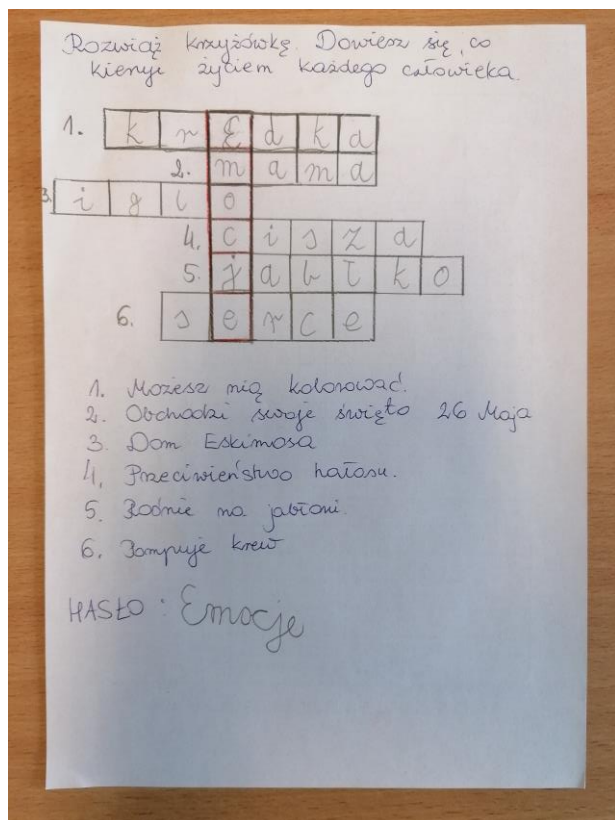 Rozwiąż krzyżówkę. Dowiesz się, co
kieruje życiem każdego człowieka.
1. k r E d k a
2. m a m a
3. i g l o
4. c i s z a
5. j a b ł k o
6. s e r c e
1. Możesz nią kolorować.
2. Obchodzi swoje święto 26 Maja
3. Dom Eskimosa
4. Przeciwieństwo hałasu.
5. Rośnie na jabłoni.
6. Pompuje krew
HASŁO : Emocje